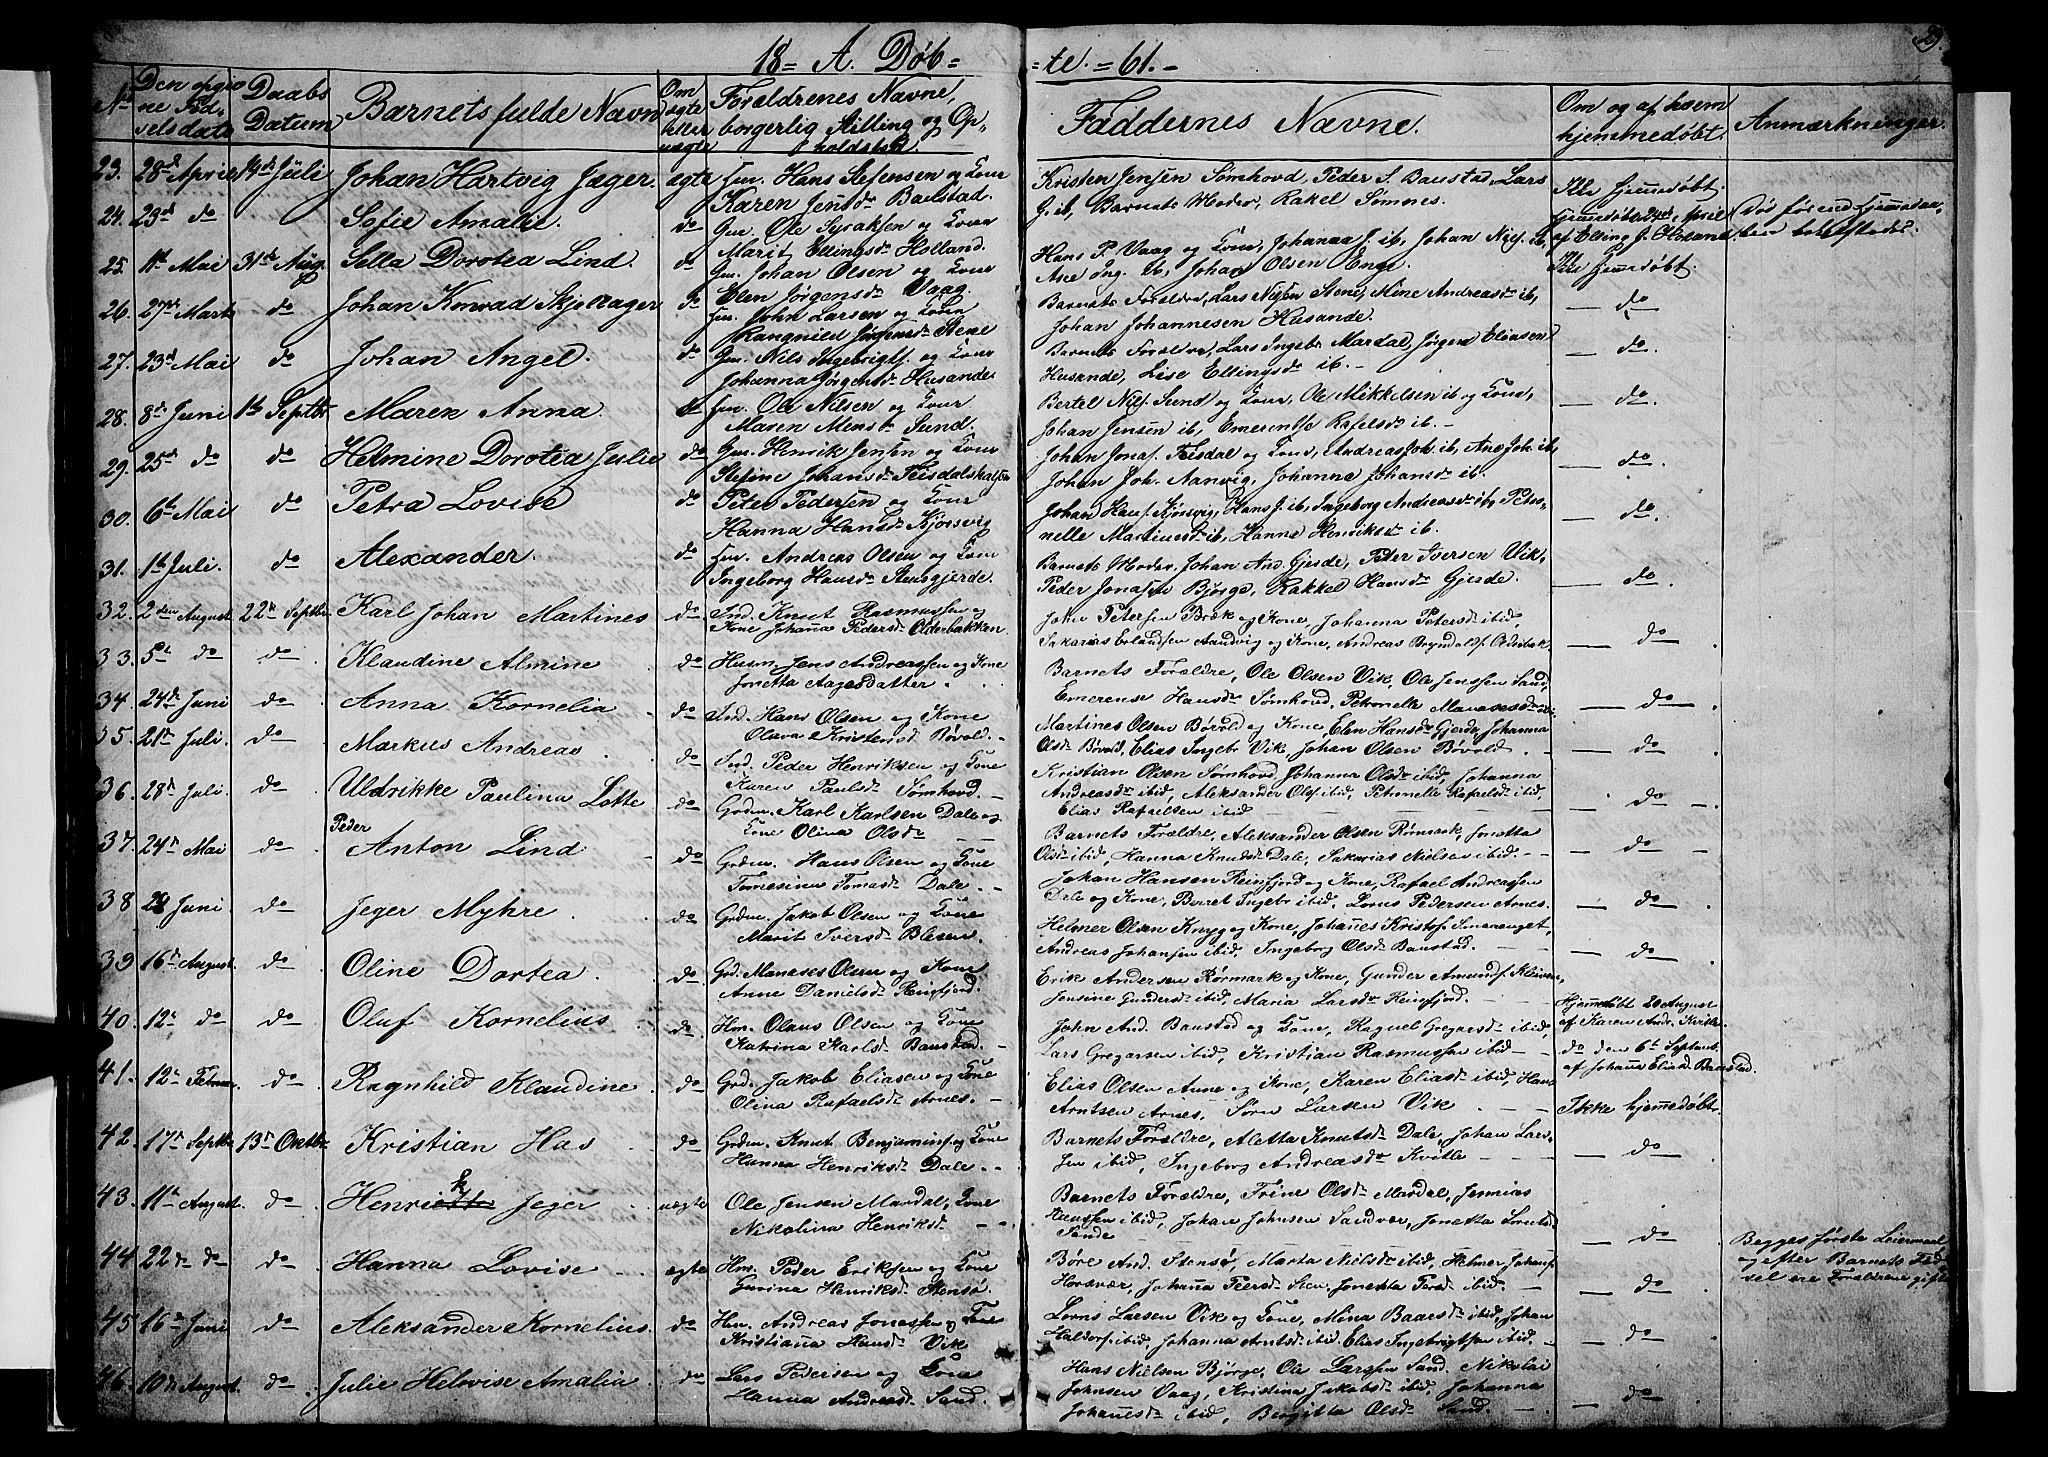 18 = A. Døb =
= te. = 61. -
29.
No
Den opgiv
ne Fød,
selsdato
Daabs
Datum
Barnets fulde Navn
Om
ægte
eller
uægte
Forældrenes Navne,
borgerlig Stilling og Op,
holdssted.
Faddernes Navne.
Om og af hvem
hjemmedøbt.
Anmærkninger.
23. 28d April 14de Juli Johan Hartvig Jæger. ægte Hans Stefensen og Kone
Karen Jensd. Baustad.
Kristen Jensen Sømhovd, Peder S. Baustad, Lars
J. ib, Barnets Moder, Rakel Sømnes.
Ikke hjemmedøbt.
24. 29d do Sofie Amalie. do Gm. Ole Syraksen og Kone
Marit Ellingsd Holland.
Hjemmedøbt April
af Elling J. Holland
Død førend hjemmedaa,
ben bekræftedes.
25. 11t Mai 31de Aug Sella Dorotea Lind. do Gm. Johan Olsen og Kone
Elen Jørgensd Vaag.
Hans P. Vaag og Kone, Johanna J. ib, Johan Nils. ib,
Ane Ing. ib, Johan Olsen Enge.
Ikke hjemmedøbt.
26. 27de Marts do Johan Konrad Skjelvager do John Larsen og Kone
Rangnild Jørgensd Stene
Barnets Forældre, Lars Nilsen Stene, Mine Andreasd ib,
Johan Johannesen Husande.
— do
27. 23d Mai do Johan Angel. do Gm. Nils Ingebrigts. og Kone
Johanna Jørgensd Husande
Barnets Forældre, Lars Ingebr Mardal, Jørgen Eliasen
Husande, Lise Ellingsd ib. —
— do.
28. 8d Juni 1te Septbr Maren Anna. do Ole Nilsen og Kone
Maren Monsd Sund.
Bertel Nils. Sund og Kone, Ole Mikkelsen ib og Kone,
Johan Jensen ib, Emerentse Rafelsd ib. —
— do.
29. 25d do do Helmine Dorotea Julie do Gm. Henrik Jensen og Kone
Stefine Johansd
Johan Jonas. Teisdal og Kone, Andreas Joh. ib, Ane Joh. ib,
Johan Joh. Aanvig, Johanne Johansd ib.
— do.
30. 6te Mai do Petra Lovise do Peter Pedersen og Kone
Hanna Hansd Kjørsvig
Johan Hans. Kjørsvig, Hans J. ib, Ingeborg Andreasd ib, Petro,
nelle Martinusd ib, Hanne Henriksd ib.
— do.
31. 1te Juli. do Alexander. do Andreas Olsen og Kone
Ingeborg Hansd Stensgjerde.
Barnets Moder, Johan And. Gjesde, Peter Iversen Vik,
Peder Jonasen Bjørge, Rakkel Hansd Gjesde.
— do
32. 2den August 22de Septbr Karl Johan Martines do Ind. Knut Rasmussen og
Kone Johanna Pedersd. Olderbakken
John Petersen Bræk og Kone, Johanna Petersd ibid,
Sakarias Erlandsen Aandvig og Kone, Andreas Bryndelds. Olderbak.
— do
33. 5te do do Klaudine Almine do Husm. Jens Andreassen og Kone
Jonetta Aagesdatter.
Barnets Forældre, Ole Olsen Vik, Ole Jenssen Sand,
Emerense Hansd Sømhovd, Petronelle
— do
34. 24de Juni do Anna Kornelia do Ind. Hans Olsen og Kone
Olava Kristensd Bøvold.
Martines Olsen Bøvold og Kone, Elen Hansd Gjerde, Johanna
Olsd Bøvold, Elias Ingebr Vik, Johan Olsen Bøvold.
— do
35. 21de Juli. do Markus Andreas do Ind. Peder Henriksen og Kone
Karen Paulsd Sømhovd.
Kristian Olsen Sømhovd, Johanna Olsd ibid, Johanna
Andreasd ibid, Aleksander Ols. ibid, Petronelle Rafaelsd ibid,
Elias Rafaelsen ibid
— do
36. 28de Juli. do Uldrikke Paulina Lotte do Grdm. Karl Karlsen Dale og
Kone Olina Olsd
Barnets Forældre, Aleksander Olsen Rørmark, Jonetta
Olsd ibid, Hanna Knudsd Dale, Sakarias Nielsen ibid.
— do
37. 24de Mai do Peder Anton Lind do Grdm. Hans Olsen og Kone
Tomesine Tomasd Dale.
Johan Hansen Reinfjord og Kone, Rafael Andreassen
Dale og Kone, Berret Ingebr ibid, Lorns Pedersen Arnes.
— do
38 Juni do Jeger Myhre. do Grdm. Jakob Olsen og Kone
Marit Iversd Blesen.
Helmer Olsen Knyg og Kone, Johannes Kristof.
Andreas Johansen ibid, Ingeborg Olsd Baustad.
— do
39 16de August. do Oline Dortea do Grd. Manases Olsen og Kone
Anne Danielsd Reinfjord.
Erik Andersen Rørmark og Kone, Gunder Amunds. Kleiven,
Jensine Gundersd ibid, Maria Larsd Reinfjord.
Hjemmedøbt 20 August
af Karen Andr. Kvitle
40. 12te do do Oluf Kornelius do Hm. Olaus Olsen og Kone
Katrina Karlsd Baustad.
John And. Baustad og Kone, Raguel Gregersd ibid,
Lars Gregarsen ibid, Kristian Rasmussen ibid
do den 6te Septemb.
af Johanna Eliasd. Baustad.
41. 12te Februar do Ragnhild Klaudine do Grd. Jakob Eliasen og Kone
Olina Rafaelsd Arnes.
Elias Olsen Arne og Kone, Karen Eliasd ibid, Hans
Arntsen Arnes, Sørn Larsen Vik
Ikke hjemmedøbt.
42. 17de Septbr 13de Oktbr Kristian Has do Grdm. Knut Benjamins. og Kone
Hanna Henriksd Dale.
Barnets Forældre, Aletta Knutsd Dale, Johan Lars,
sen ibid, Ingeborg Andreasd Kvitle
— do
43. 11te August. do Henrik Jeger uægte Ole Jensen Mardal, Kone
Nikolina Henriksd
Barnets Forældre, Trine Olsd Mardal, Jennias
Hanssen ibid, Johan Johnsen Sandvær, Jonetta
Sande
— do
Begges første Leiermaal
og efter Barnets Fød,
sel ere Forældrene gifte
44 22de do do Hanna Lovise ægte Hm. Peder Eriksen og Kone
Gurina Henriksd. Stensø.
Børe And. Stensø, Marta Nielsd ibid, Helmer Johans.
Horsvær, Johanna Peersd Sten, Jonetta Persd ibid.
— do
45 16de Juni do Aleksander Kornelius. do Hm. Andreas Jonassen og Kone
Kristianna Hansd Vik
Lorns Larsen Vik og Kone, Mina Baarsd ibid, Johan
Haldors. ibid, Johanna Arntsd ibid. Elias Ingebrigtsen ibid.
— do
46. 10de August. do Julie Helvise Amalia do Lars Pedersen og Kone
Hanna Andreasd Sand.
Hans Nielsen Bjørge, Ole Larssen Sand. Nikolai
Johnsen Vaag, Kristina Jakobsd ibid, Johanna
Johannesd ibid, Bergitta Olsd Sand.
— do